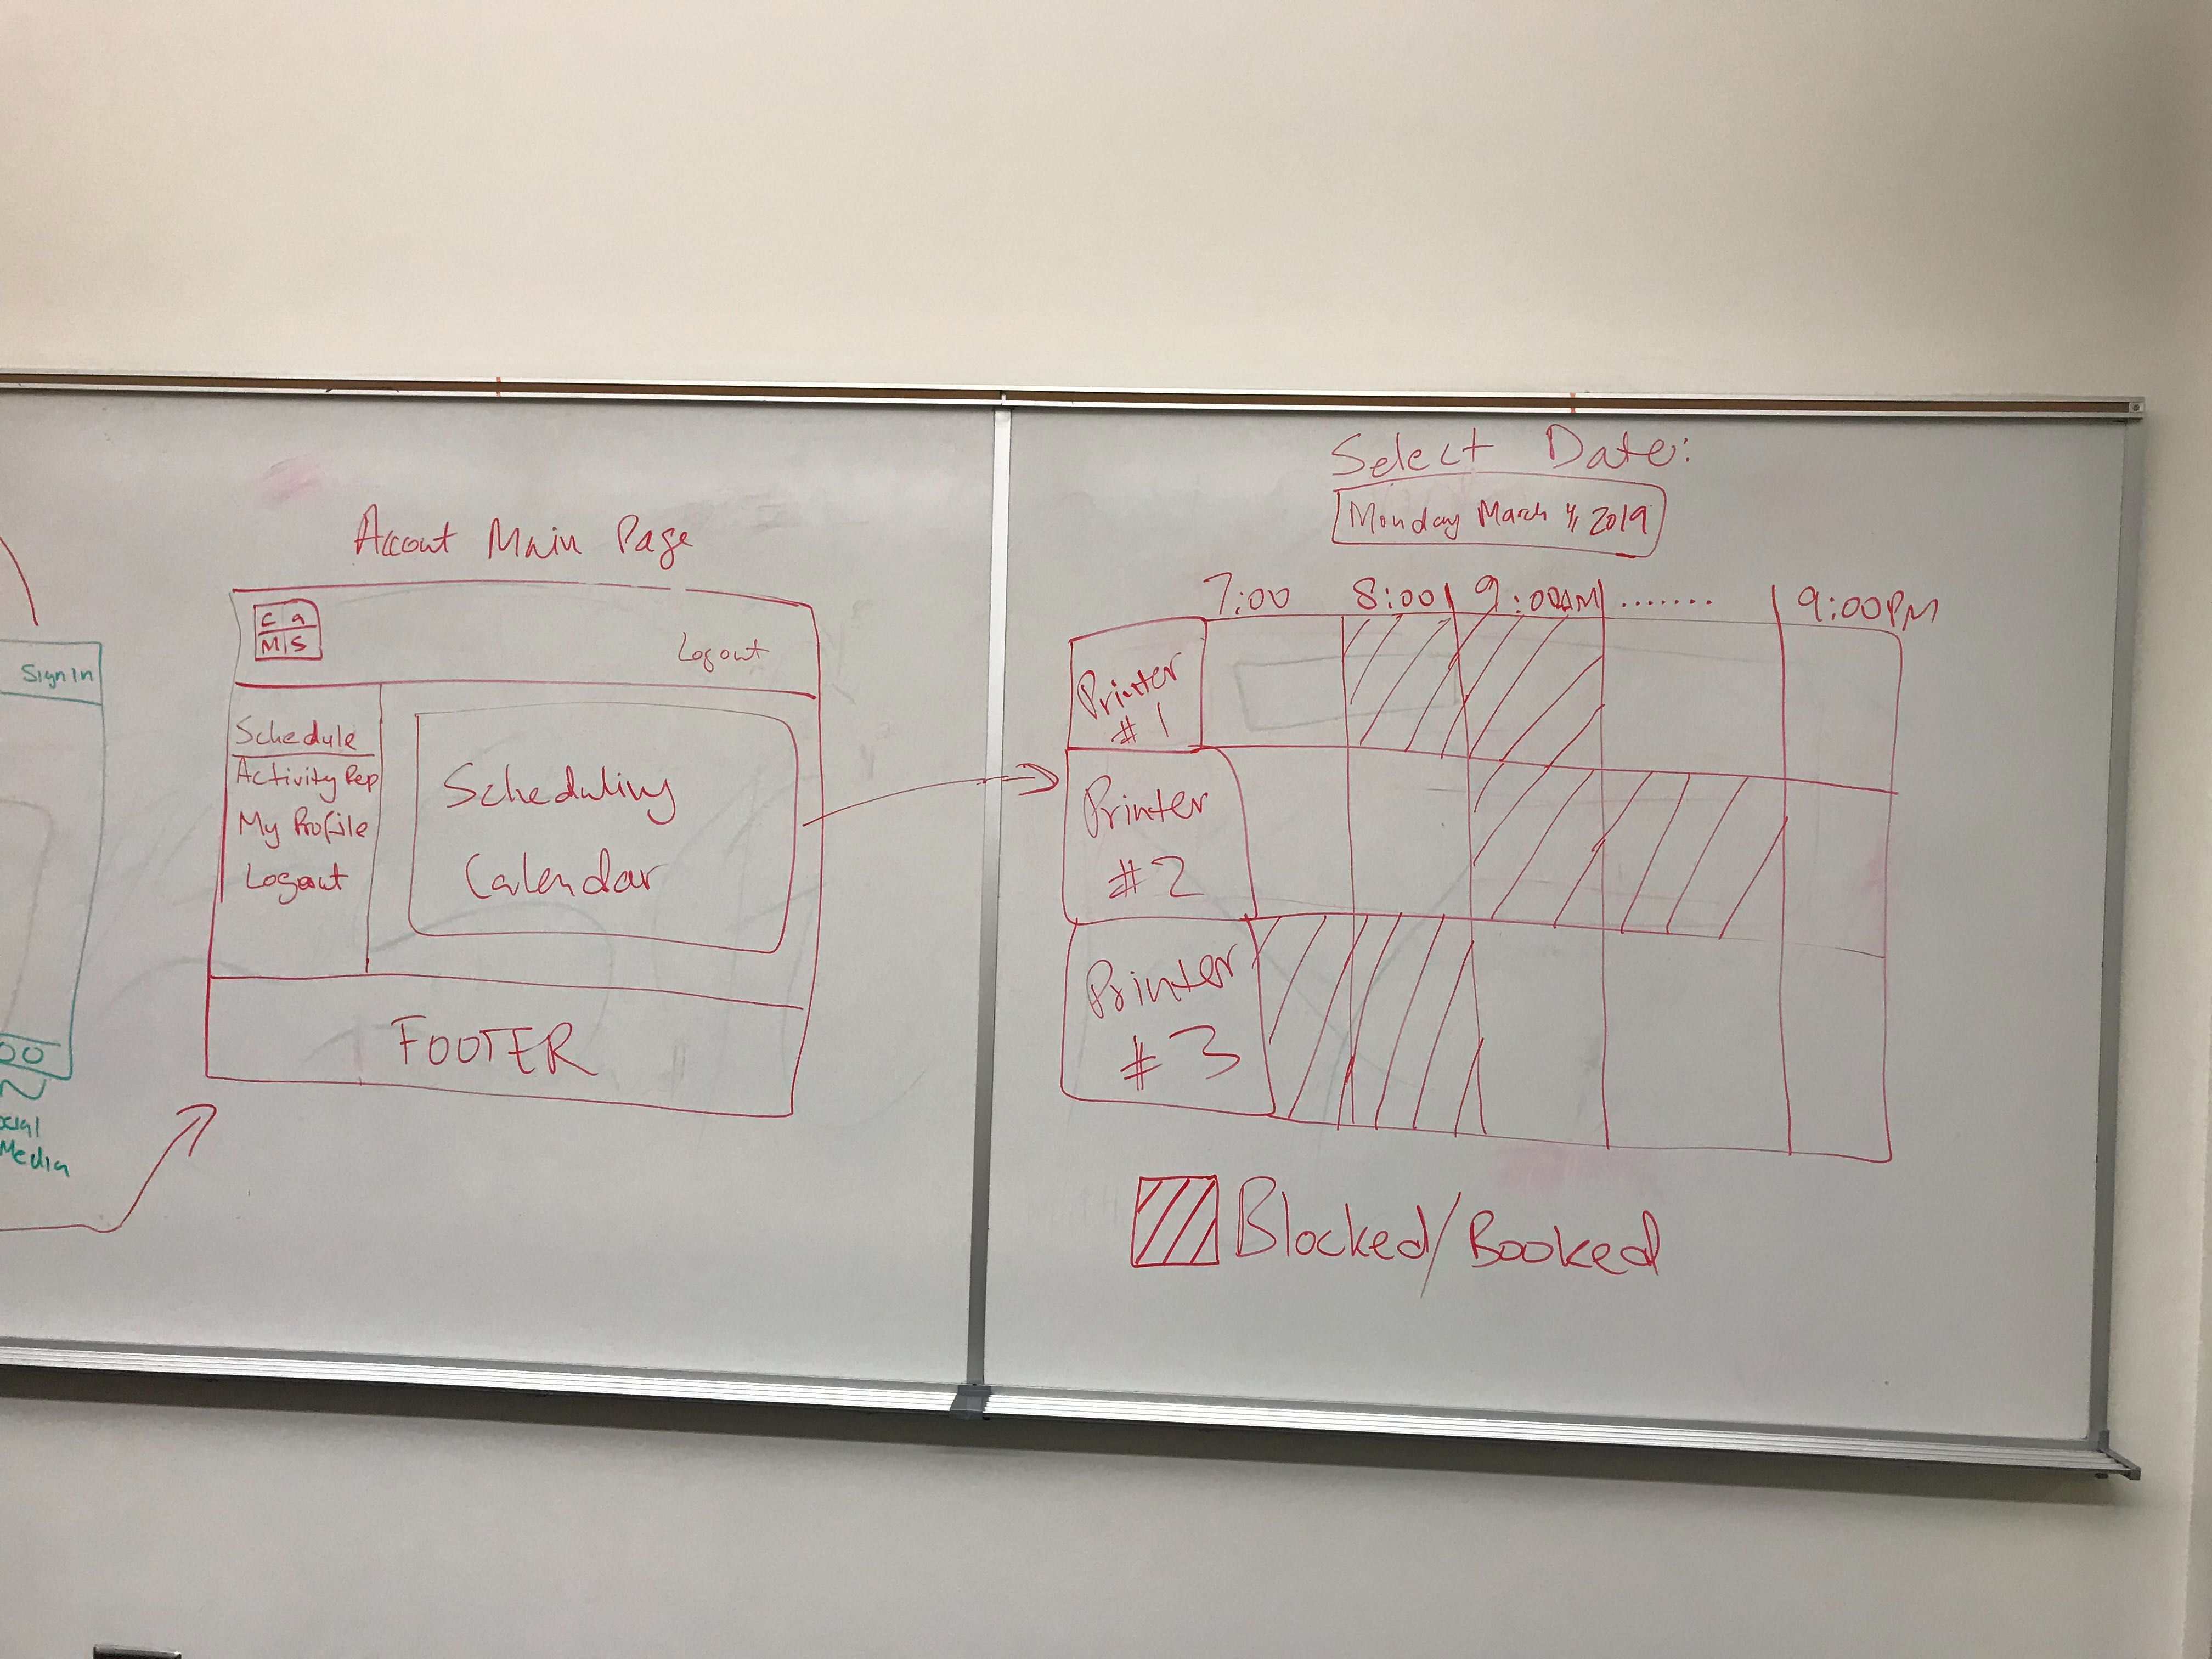 Sign In
ocial
Media
Accout Main Page
C a
M S
Logout
Schedule
Activity Rep
My Profile
Logout
Scheduling
Calendar
FOOTER
Select Date:
Monday March 4, 2019
7:00 8:00 9:00AM ....... 9:00PM
Printer
#1
Printer
#2
Printer
#3
Blocked/Booked